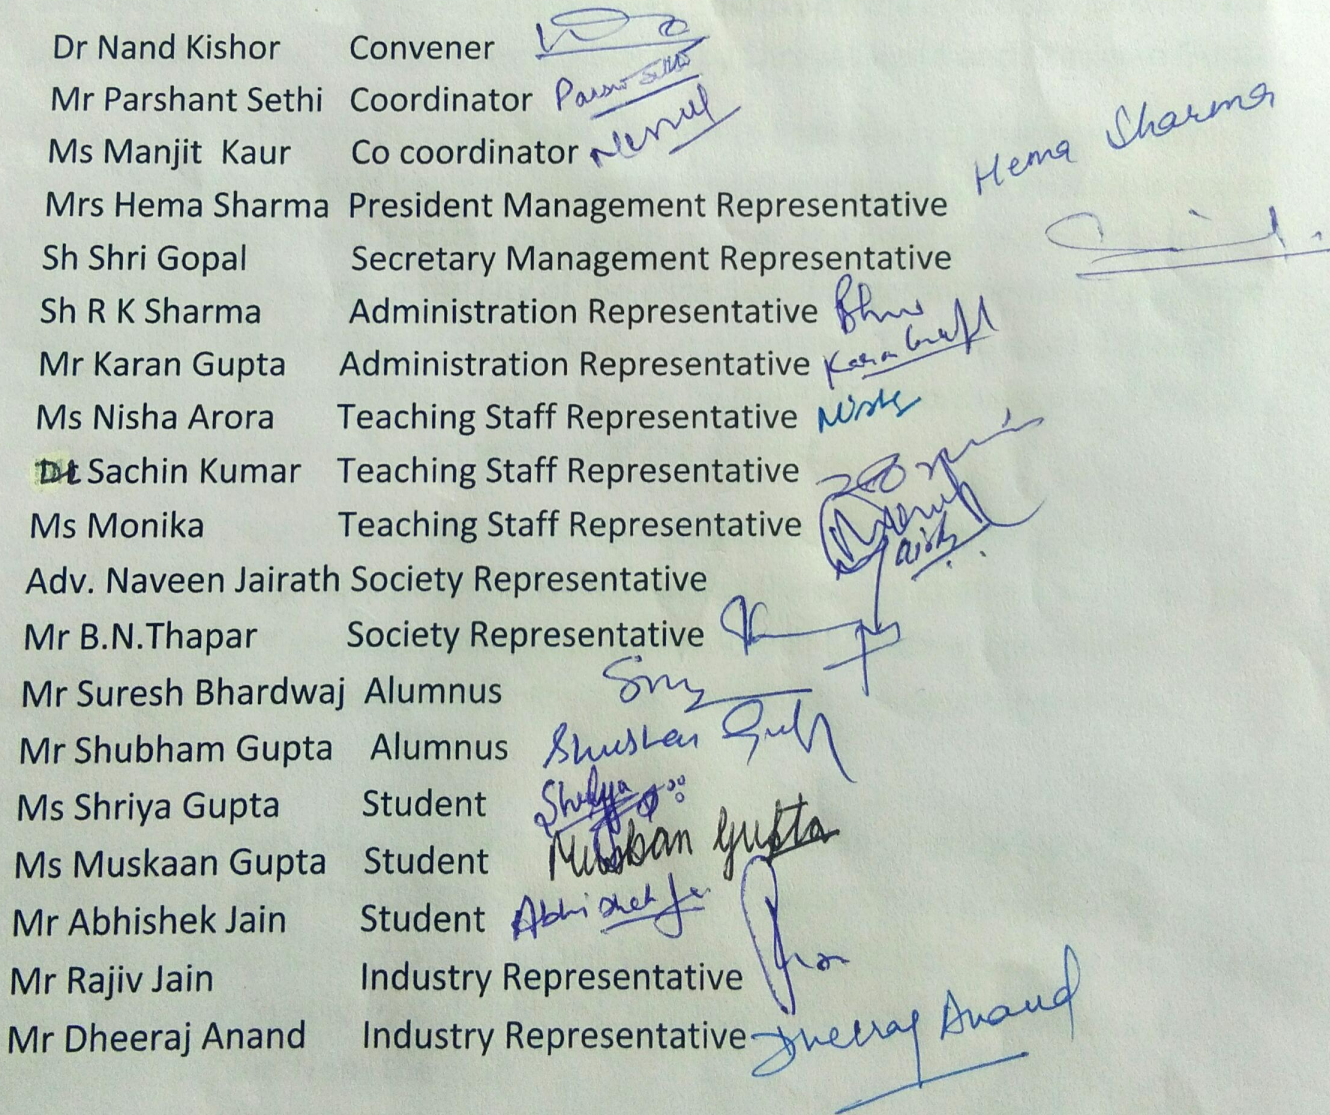 Dr Nand Kishor Convener
Mr Parshant Sethi Coordinator
Ms Manjit Kaur Co coordinator
Hema Sharma
Mrs Hema Sharma President Management Representative
Sh Shri Gopal Secretary Management Representative
Sh R K Sharma Administration Representative
Mr Karan Gupta Administration Representative
Ms Nisha Arora Teaching Staff Representative Nisha
Dr Sachin Kumar Teaching Staff Representative
Ms Monika Teaching Staff Representative
Adv. Naveen Jairath Society Representative
Mr B.N.Thapar Society Representative
Mr Suresh Bhardwaj Alumnus
Mr Shubham Gupta Alumnus
Ms Shriya Gupta Student
Ms Muskaan Gupta Student Muskan Gupta
Mr Abhishek Jain Student Abhishek
Mr Rajiv Jain Industry Representative
Mr Dheeraj Anand Industry Representative Dheeraj Anand